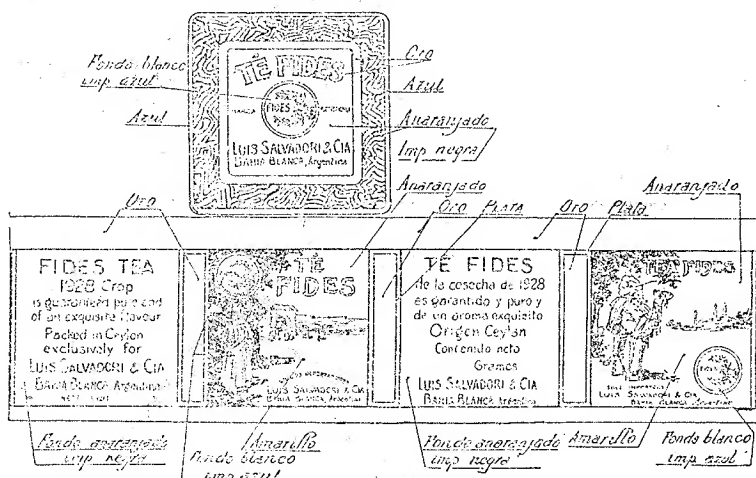 Fondo blanco
imp azul
Azul
TÉ FIDES
MARCA
FIDES
LUIS SALVADORI & CIA
BAHIA BLANCA, Argentina
Oro
Azul
Anaranjado
Imp negra
Oro
Anaranjado
Oro
PLATA
Oro
Plata
Anaranjado
FIDES TEA
1928 Crop
is guaranteed pure and
of an exquisite flavour
Packed in Ceylon
exclusively for
LUIS SALVADORI & CIA
BAHIA BLANCA, Argentina
TÉ
FIDES
LUIS SALVADORI & CIA
BAHIA BLANCA, Argentina
TÉ FIDES
de la cosecha de 1928
es garantido y puro y
de un aroma exquisito
Origen Ceylan
Contenido neto
Gramos
LUIS SALVADORI & CIA
BAHIA BLANCA, Argentina
TÉ FIDES
LUIS SALVADORI & CIA
BAHIA BLANCA, Argentina
Fondo anaranjado
imp negra
Fondo blanco
imp azul
Amarillo
Fondo anaranjado
imp negra
Amarillo
Fondo blanco
imp azul